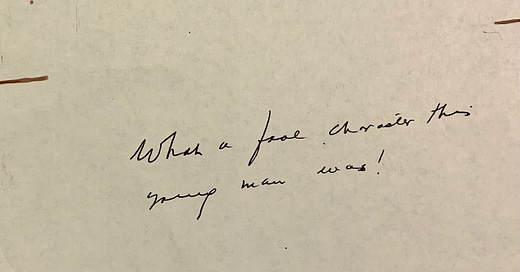 What a character this
young man was!